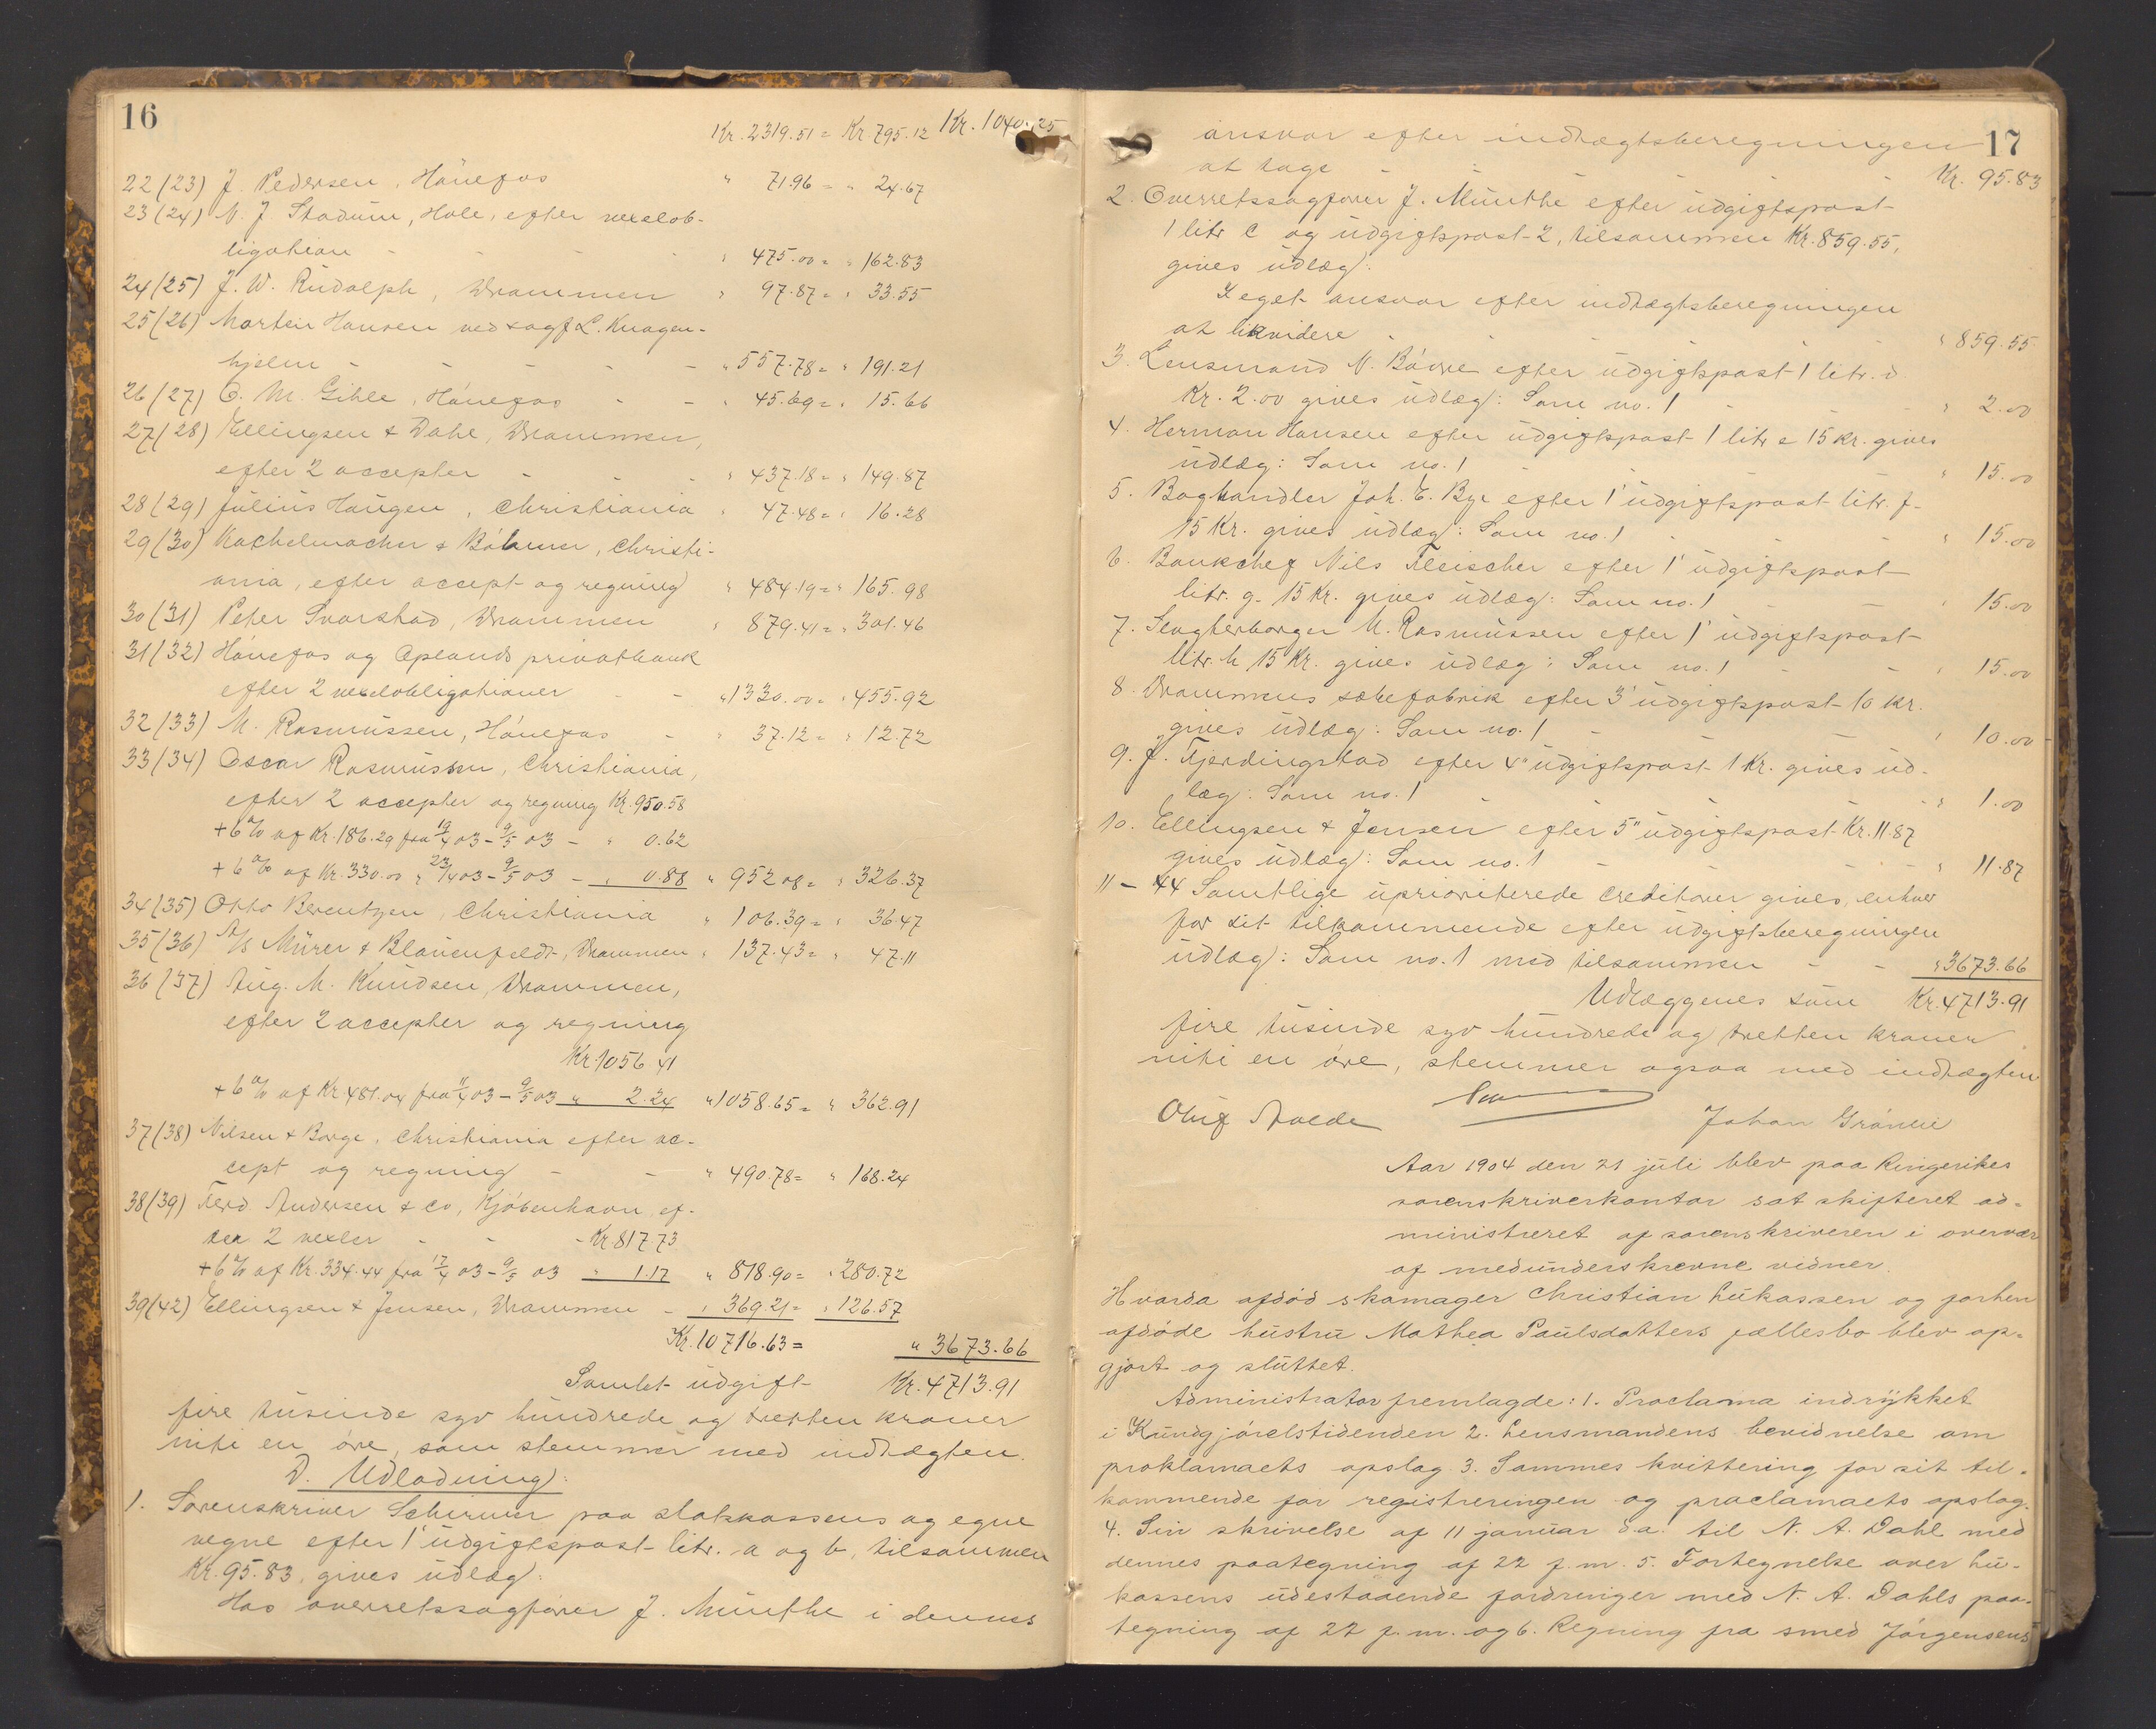 16
Kr. 2319.51 = Kr 795.12 Kr. 1040.25
22 (23) J. Pedersen, Hønefos " 71.96 = " 24.67
23 (24) N. J. Stadum, Hole, efter vexelob-
ligation - - - " 475.00 = " 162.83
24 (25) J. W. Rudolph, Drammen " 97.87 = " 33.55
25 (26) Morten Hansen ved sagf. L. Knagen-
hjelm - - - - " 557.78 = " 191.21
26 (27) O. M. Gihle, Hønefos - - " 45.69 = " 15.66
27 (28) Ellingsen & Dahl, Drammen,
efter 2 accepter - - - " 437.18 = " 149.87
28 (29) Julius Haugen, Christiania " 47.48 = " 16.28
29 (30) Kachelmacher & Bølmer, Christi-
ania, efter accept og regning " 484.19 = " 165.98
30 (31) Peter Svarstad, Drammen " 879.41 = " 301.46
31 (32) Hønefos og Oplands privatbank
efter 2 vexelobligationer - - " 1330.00 = " 455.92
32 (33) M. Rasmussen, Hønefos - " 37.12 = " 12.72
33 (34) Oscar Rasmussen, Christiania,
efter 2 accepter og regning Kr. 950.58
+ 6 % af Kr. 186.29 fra 19/4 03 - 9/5 03 - " 0.62
+ 6 % af Kr. 330.00 " 23/4 03 - 9/5 03 - " 0.88 " 952.08 = " 326.37
34 (35) Otto Berentzen, Christiania " 106.39 = " 36.47
35 (36) A/s Mürer & Blauenfeldt, Drammen " 137.43 = " 47.11
36 (37) Aug. M. Knudsen, Drammen,
efter 2 accepter og regning
Kr. 1056.41
+ 6 % af Kr. 481.04 fra 11/4 03 - 9/5 03 " 2.24 " 1058.65 = " 362.91
37 (38) Nilsen & Borge, Christiania efter ac-
cept og regning - - " 490.78 = " 168.24
38 (39) Ferd. Andersen & co, Kjøbenhavn, ef-
ter 2 vexler - - - Kr. 817.73
+ 6 % af Kr. 334.44 fra 17/4 03 - 9/5 03 " 1.17 " 818.90 = " 280.72
39 (42) Ellingsen & Jensen, Drammen - " 369.21 = " 126.57
Kr. 10716.63 = " 3673.66
Samlet udgift Kr. 4713.91
fire tusinde syv hundrede og tretten kroner
niti en øre, som stemmer med indtægten.
D. Udlodning:
1. Sorenskriver Schirmer paa statskassens og egne
vegne efter 1' udgiftspost litr. a og b, tilsammen
Kr. 95.83, gives udlæg:
Hos overretssagfører J. Münthe i dennes
17
ansvar efter indtægtsberegningen
at tage - - Kr. 95.83
2. Overretssagfører J. Münthe efter udgiftspost
1 litr c og udgiftspost 2, tilsammen Kr. 859.55,
gives udlæg:
I eget ansvar efter indtægtsberegningen
at likvidere - - - " 859.55
3. Lensmand N. Børre efter udgiftspost 1 litr. d
Kr. 2.00 gives udlæg: Som no. 1 - " 2.00
4. Herman Hansen efter udgiftspost 1 litr e 15 kr. gives
udlæg: Som no. 1 - - " 15.00
5. Boghandler Joh. E. Bye efter 1' udgiftspost litr. f.
15 Kr. gives udlæg: Som no. 1 - - " 15.00
6. Bankchef Nils Fleischer efter 1' udgiftspost
litr. g. 15 Kr. gives udlæg: Som no. 1 - - " 15.00
7. Slagterborger M. Rasmussen efter 1' udgiftspost
litr. h 15 Kr. gives udlæg: Som no. 1 - - " 15.00
8. Drammens sæbefabrik efter 3' udgiftspost 10 kr.
gives udlæg: Som no. 1 - - " 10.00
9. J. Fjerdingstad efter 4" udgiftspost 1 Kr. gives ud-
læg: Som no. 1 - - " 1.00
10. Ellingsen & Jensen efter 5" udgiftspost Kr. 11.87
gives udlæg: Som no. 1 - - " 11.87
11 - 44 Samtlige uprioriterede creditorer gives, enhver
for sit tilkommende efter udgiftsberegningen
udlæg: Som no. 1 med tilsammen - - " 3673.66
Udlæggenes sum Kr. 4713.91
fire tusinde syv hundrede og tretten kroner
niti en øre, stemmer ogsaa med indtægten
Oluf Johan
Aar 1904 den 21 juli blev paa Ringerikes
sorenskriverkontor sat skifteret ad-
ministreret af sorenskriveren i overvær
af medunderskrevne vidner.
Hvorda afdød skomager Christian Lukassen og forhen
afdøde hustru Mathea Paulsdatters fællesbo blev op-
gjort og sluttet.
Administrator fremlagde: 1. Proclama indrykket
i Kundgjørelstidenden 2. Lensmandens bevidnelse om
proklamaets opslag. 3. Sammes kvittering for sit til-
kommende for registreringen og proclamaets opslag.
4. Sin skrivelse af 11 januar d.a. til N. A. Dahl med
dennes paategning af 22 f.m. 5. Fortegnelse over Lu-
kassens udestaaende fordringer med N. A. Dahls paa-
tegning af 22 f.m. og 6. Regning fra smed Jørgensens